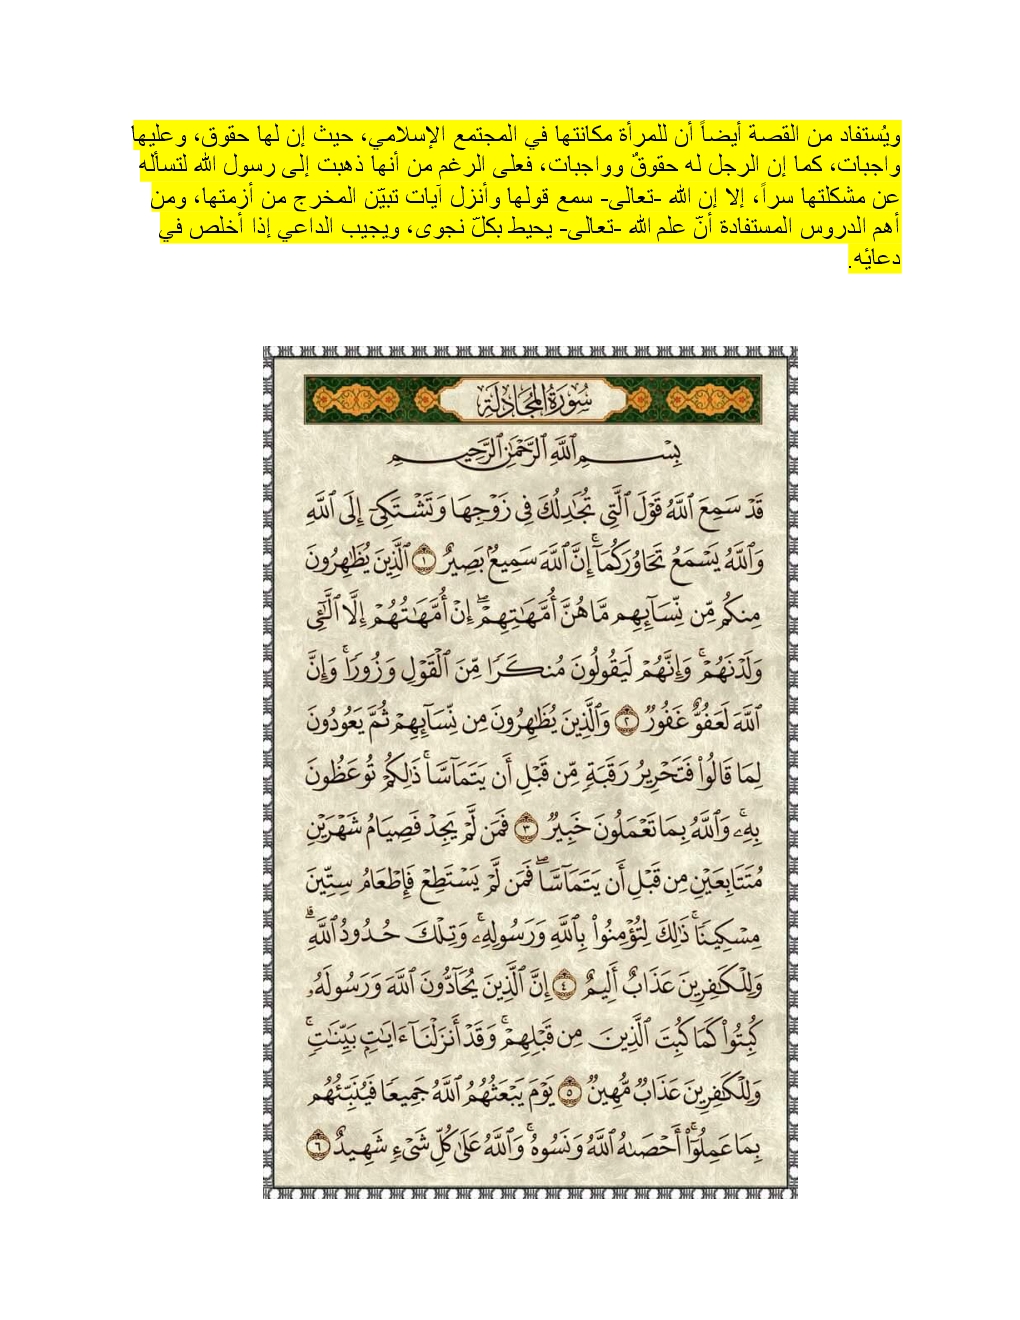 ويُستفاد من القصة أيضاً أن للمرأة مكانتها في المجتمع الإسلامي، حيث إن لها حقوق، وعليها
واجبات، كما إن الرجل له حقوقٌ وواجبات، فعلى الرغم من أنها ذهبت إلى رسول الله لتسأله
عن مشكلتها سراً، إلا إن الله -تعالى- سمع قولها وأنزل آيات تبيّن المخرج من أزمتها، ومن
أهم الدروس المستفادة أنّ علم الله -تعالى- يحيط بكلّ نجوى، ويجيب الداعي إذا أخلص في
دعائه.
سُورَةُ المُجَادلَة
بِسْمِ ٱللَّهِ ٱلرَّحْمَٰنِ ٱلرَّحِيمِ
قَدْ سَمِعَ ٱللَّهُ قَوْلَ ٱلَّتِي تُجَٰدِلُكَ فِي زَوْجِهَا وَتَشْتَكِيٓ إِلَى ٱللَّهِ
وَٱللَّهُ يَسْمَعُ تَحَاوُرَكُمَآۚ إِنَّ ٱللَّهَ سَمِيعُۢ بَصِيرٌ ١ ٱلَّذِينَ يُظَٰهِرُونَ
مِنكُم مِّن نِّسَآئِهِم مَّا هُنَّ أُمَّهَٰتِهِمْۖ إِنْ أُمَّهَٰتُهُمْ إِلَّا ٱلَّٰٓـِٔي
وَلَدْنَهُمْۚ وَإِنَّهُمْ لَيَقُولُونَ مُنكَرًا مِّنَ ٱلْقَوْلِ وَزُورًاۚ وَإِنَّ
ٱللَّهَ لَعَفُوٌّ غَفُورٌ ٢ وَٱلَّذِينَ يُظَٰهِرُونَ مِن نِّسَآئِهِمْ ثُمَّ يَعُودُونَ
لِمَا قَالُوا۟ فَتَحْرِيرُ رَقَبَةٍ مِّن قَبْلِ أَن يَتَمَآسَّاۚ ذَٰلِكُمْ تُوعَظُونَ
بِهِۦۚ وَٱللَّهُ بِمَا تَعْمَلُونَ خَبِيرٌ ٣ فَمَن لَّمْ يَجِدْ فَصِيَامُ شَهْرَيْنِ
مُتَتَابِعَيْنِ مِن قَبْلِ أَن يَتَمَآسَّاۖ فَمَن لَّمْ يَسْتَطِعْ فَإِطْعَامُ سِتِّينَ
مِسْكِينًاۚ ذَٰلِكَ لِتُؤْمِنُوا۟ بِٱللَّهِ وَرَسُولِهِۦۚ وَتِلْكَ حُدُودُ ٱللَّهِۗ
وَلِلْكَٰفِرِينَ عَذَابٌ أَلِيمٌ ٤ إِنَّ ٱلَّذِينَ يُحَآدُّونَ ٱللَّهَ وَرَسُولَهُۥ
كُبِتُوا۟ كَمَا كُبِتَ ٱلَّذِينَ مِن قَبْلِهِمْۚ وَقَدْ أَنزَلْنَآ ءَايَٰتِۭ بَيِّنَٰتٍۚ
وَلِلْكَٰفِرِينَ عَذَابٌ مُّهِينٌ ٥ يَوْمَ يَبْعَثُهُمُ ٱللَّهُ جَمِيعًا فَيُنَبِّئُهُم
بِمَا عَمِلُوٓا۟ۚ أَحْصَىٰهُ ٱللَّهُ وَنَسُوهُۚ وَٱللَّهُ عَلَىٰ كُلِّ شَيْءٍ شَهِيدٌ ٦